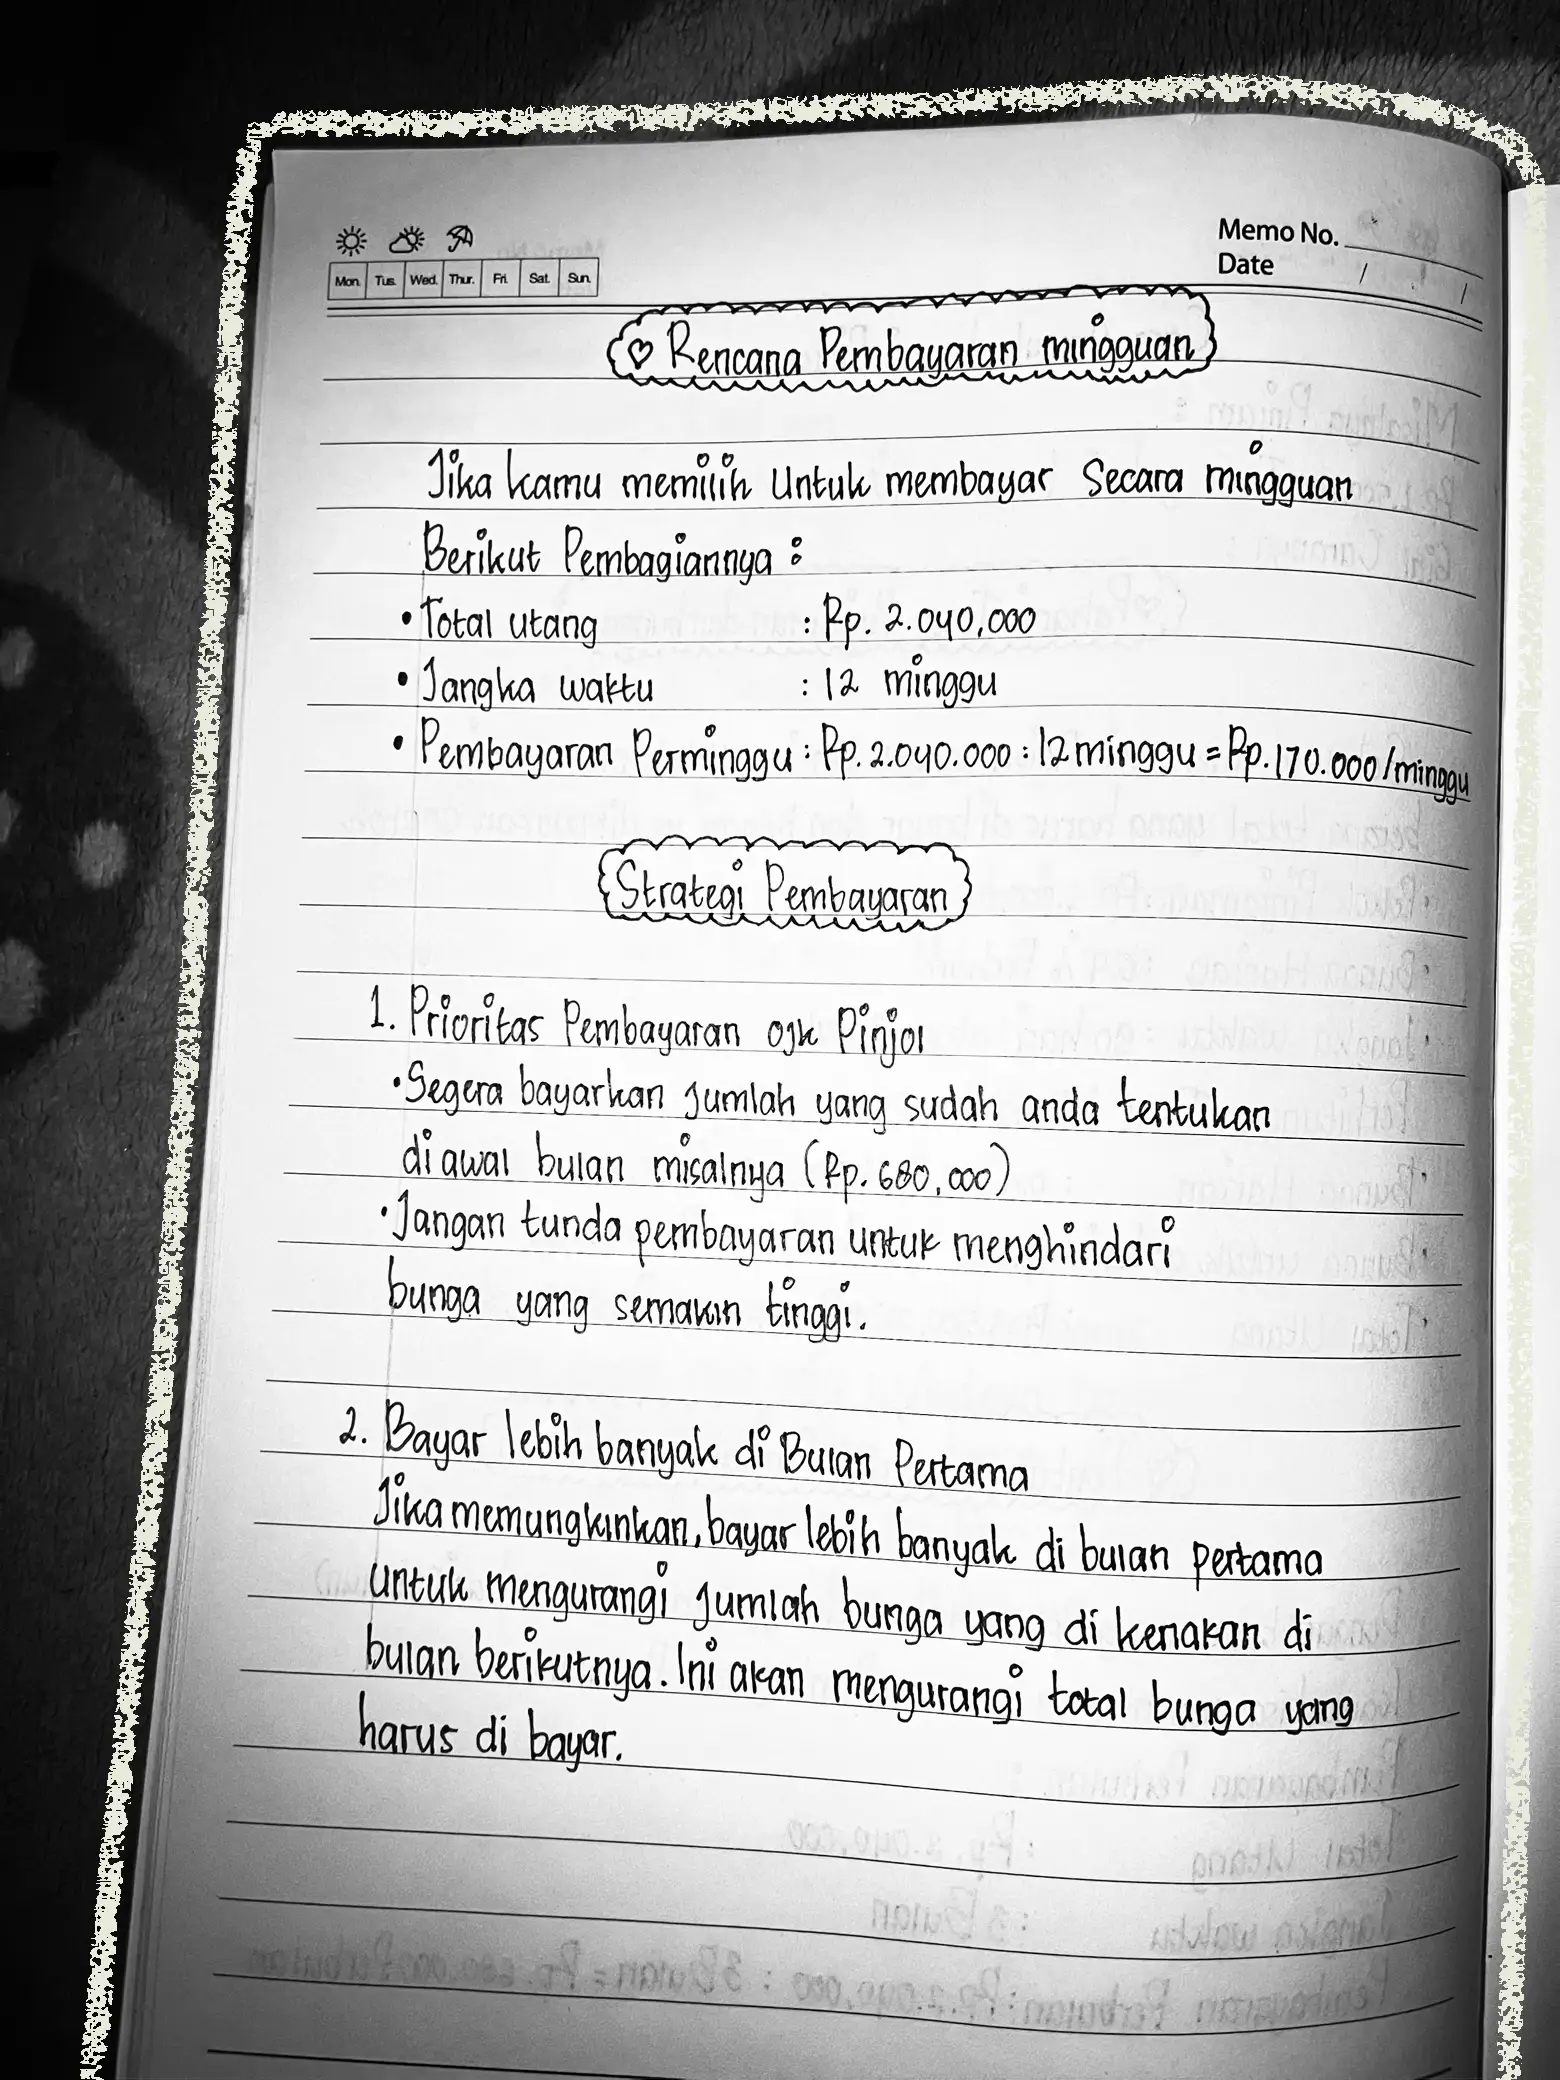 Memo No.
Date / /
Mon. Tus. Wed. Thur. Fri. Sat. Sun.
Rencana Pembayaran mingguan
Jika kamu memilih Untuk membayar Secara mingguan
Berikut Pembagiannya :
• Total utang : Rp. 2.040,000
• Jangka waktu : 12 minggu
• Pembayaran Perminggu : Rp. 2.040.000 : 12 minggu = Rp. 170.000/minggu
Strategi Pembayaran
1. Prioritas Pembayaran ojk Pinjol
• Segera bayarkan jumlah yang sudah anda tentukan
di awal bulan misalnya (Rp. 680,000)
• Jangan tunda pembayaran untuk menghindari
bunga yang semakin tinggi.
2. Bayar lebih banyak di Bulan Pertama
Jika memungkinkan, bayar lebih banyak di bulan pertama
untuk mengurangi jumlah bunga yang di kenakan di
bulan berikutnya. Ini akan mengurangi total bunga yang
harus di bayar.